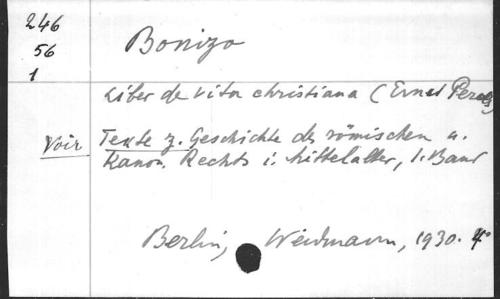 246
56
1
Bonizo
Liber de vita christiana (Ernst Perels)
Voir Texte z. Geschichte des römischen u.
Kanon. Rechts i. Mittelalter, 1. Band
Berlin, Weidmann, 1930. 4°